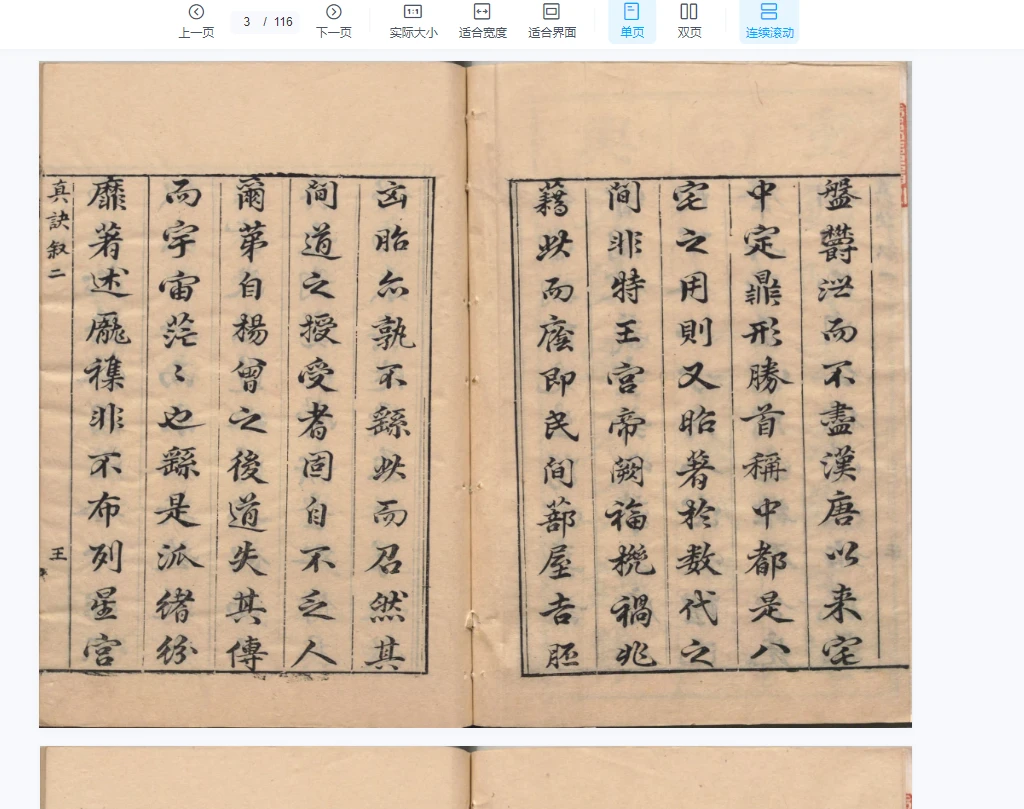 上一页
3 / 116
下一页
1:1
实际大小
适合宽度
适合界面
单页
双页
连续滚动
盤欝泄而不盡漢唐以来宅
中定鼎形勝首稱中都是八
宅之用則又昭著於数代之
间非特王宮帝闕福機禍兆
藉此而廕即民间蔀屋吉胚
凶胎亦孰不繇此而召然其
间道之授受者固自不乏人
爾第自楊曾之後道失其傳
而宇宙茫〻也繇是派緒紛
靡著述龎襍非不布列星宮
真訣叙二
王